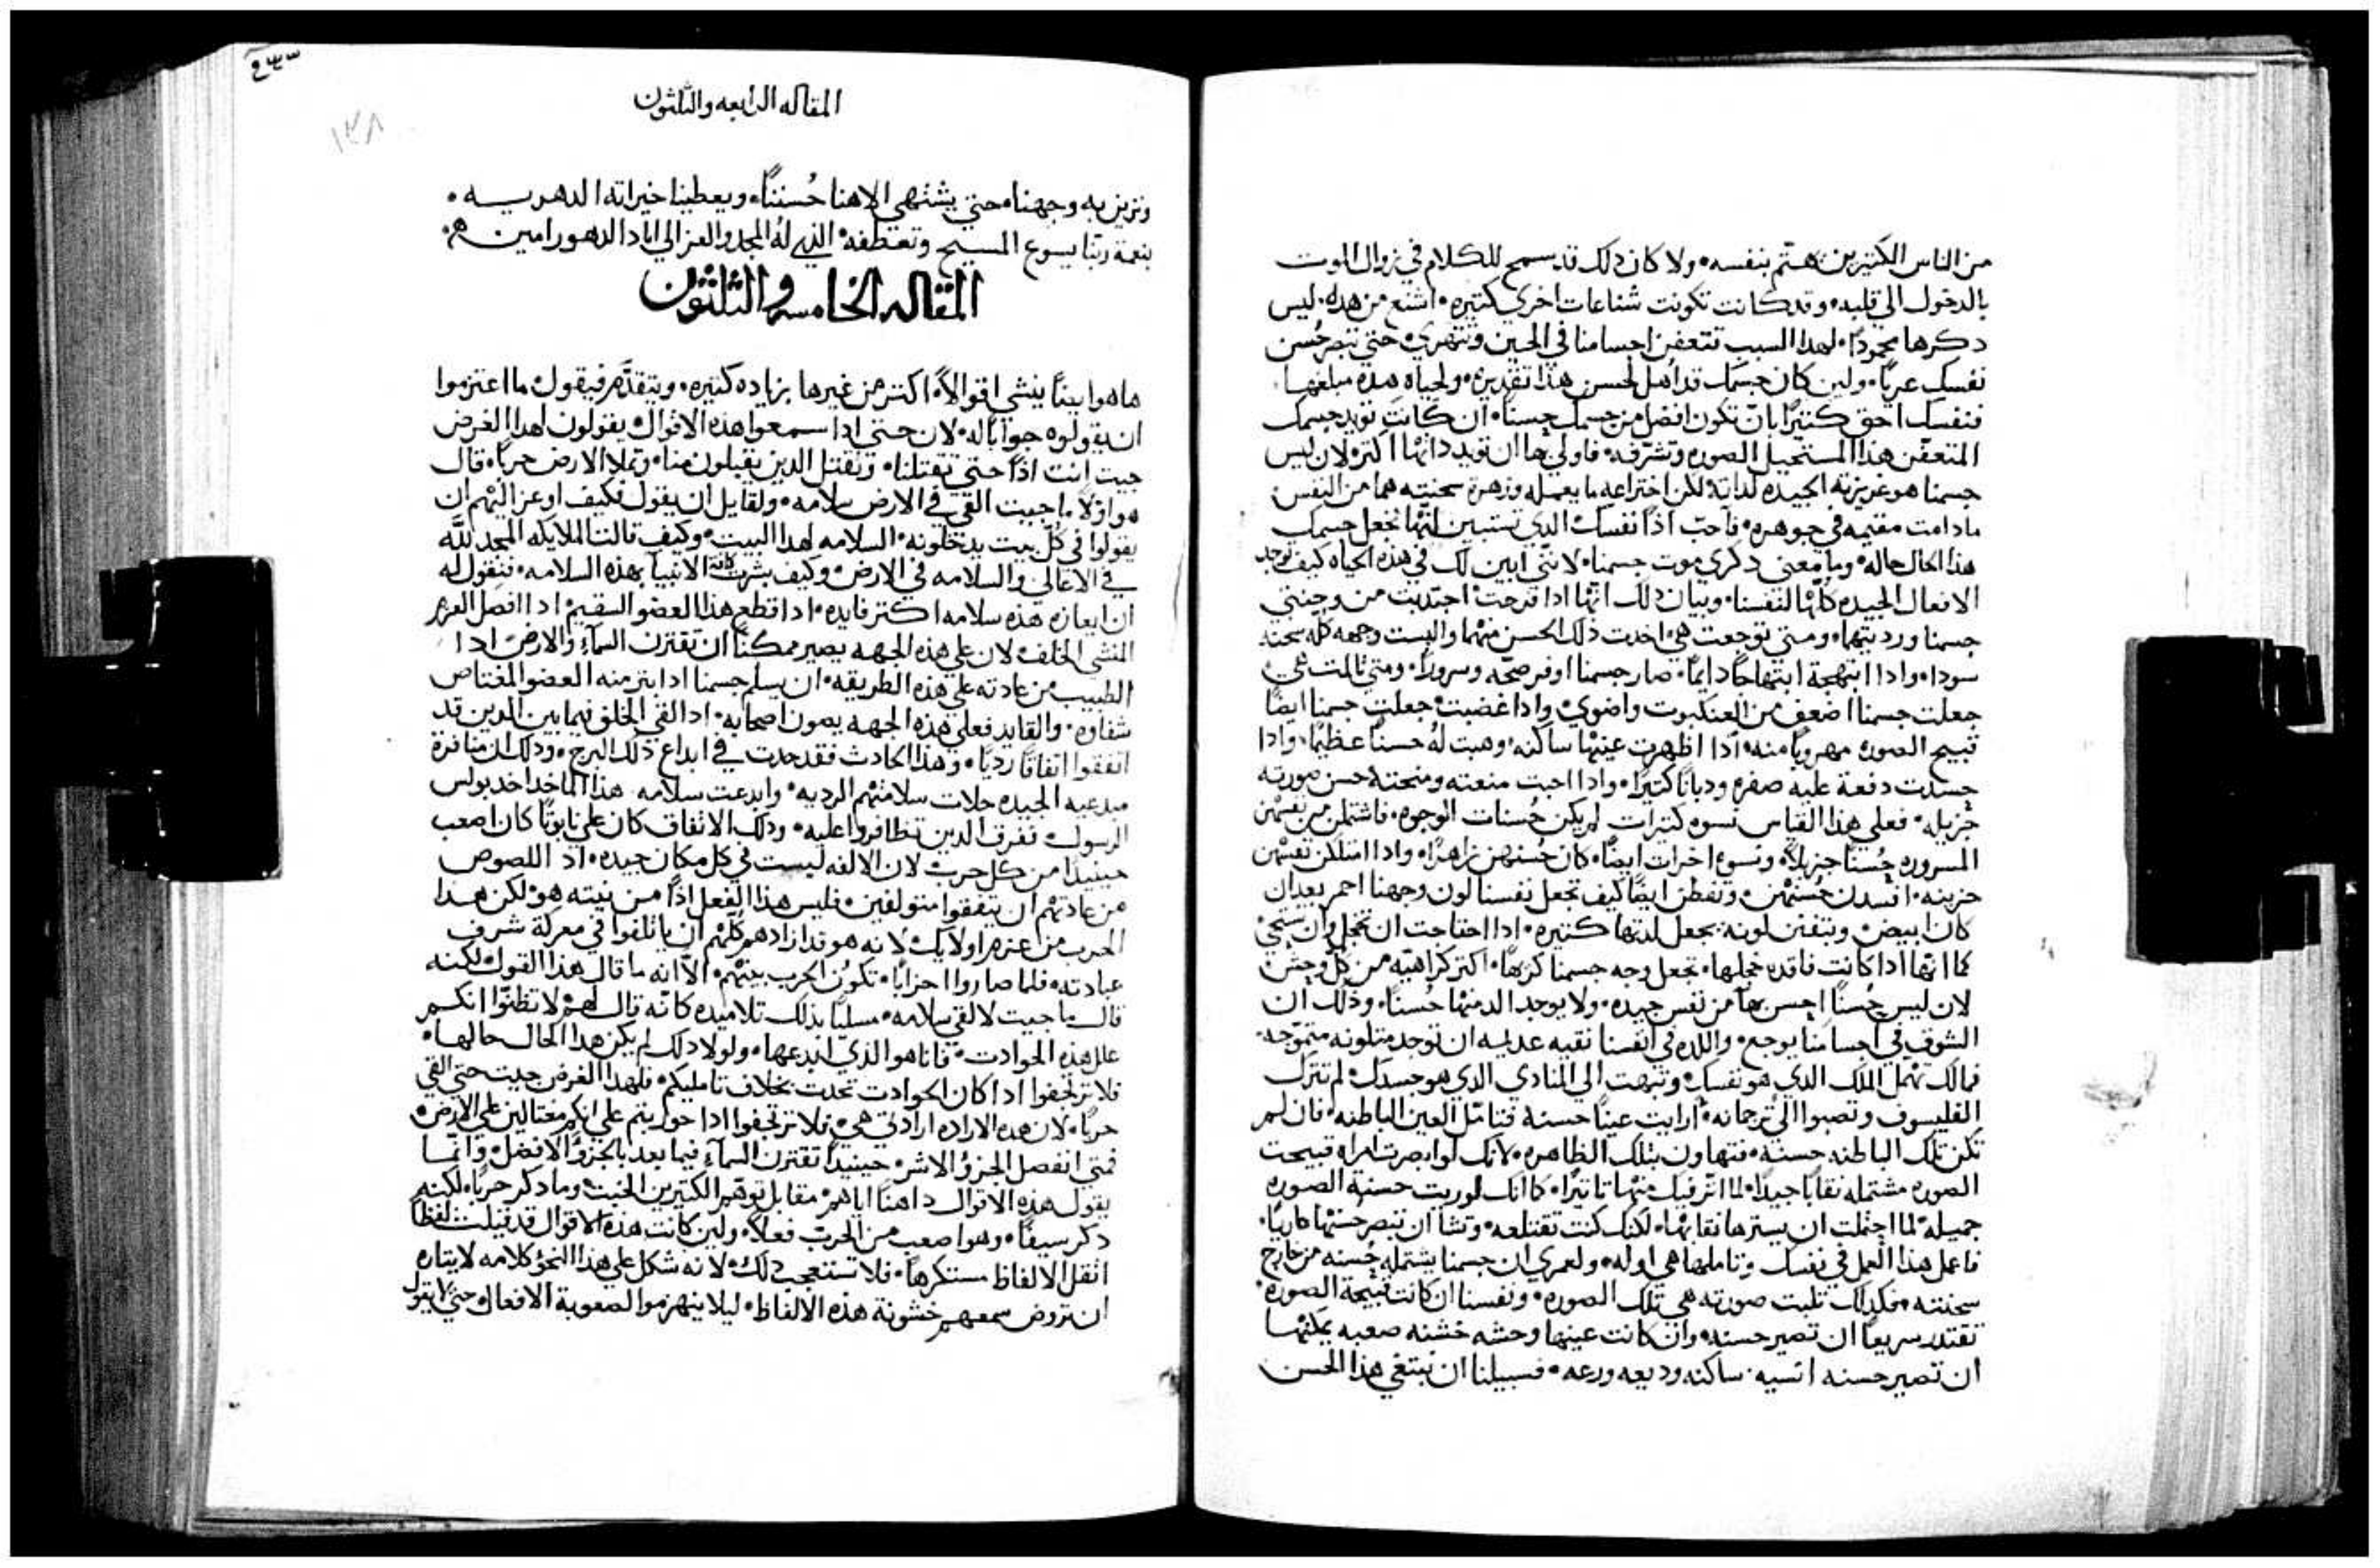 من الناس الكتيرين هتم بنفسه، ولا كان دلك قد سمح للكلام في زوال الموت
بالدخول الي قلبه، وقد كانت تكونت شناعات اخري كتيره، اشنع من هده، ليس
دكرها محمودًا، لهدا السبب تتعفن اجسامنا في الحين وتتهري، حتي تبصر حُسن
نفسك عريًا، ولين كان جسمك قد اهل لحسن هدا تقديره ولحياه هده مبلغها،
فنفسك احق كتيرًا بان تكون افضل من جسمك حسنًا، ان كانت توبد جسمك
المتعفّن هدا المستحيل الصوره وتشرّفه، فاولي بها ان توبد داتها اكتر، لان ليس
جسمنا هو غريزته الجيده لداته لكن اختراعه ما يعمله وزهرة سحنته هما من النفس
مادامت مقيمه في جوهره، فاحبّ ادًا نفسك الدي تستبين انها تجعل جسمك
هدا الحال حاله، وما معني دكري موت جسمنا، لانني ابين لك في هده الحياه كيف توجد
الافعال الجيده كلّها لنفسنا، وبيان دلك انها ادا فرحت اجتدبت من وجنتي
جسمنا ورديتهما، ومتي توجعت هي، اخدت دلك الحسن منهما والبست وجهه كله سحنه
سودا، وادا ابتهجة ابتهاجًا دايمًا، صار جسمنا اوفر صحّه وسرورًا، ومتي تالمت هي
جعلت جسمنا اضعف من العنكبوت واضوي، وادا غضبت جعلت جسمنا ايضًا
قبيح الصوره مهروبًا منه، ادا اظهرت عينها ساكنه، وهبت لهُ حسنًا عظيمًا، وادا
حسدت دفعة عليه صفره ودبانًا كتيرًا، وادا احبت منعته ومنحته حسن صورته
جزيله، فعلي هدا القياس نسوه كتيرات لم يكن حُسنات الوجوه، فاشتملن من نفسهن
المسروره حُسنًا جزيلاً، ونسوه اخرات ايضًا، كان حُسنهن زاهرًا، وادا امتلكن نفسهن
حزينه، افسدن حُسنهن، وتفطن ايضًا كيف تجعل نفسنا لون وجهنا احمر بعد ان
كان ابيض، وبتفنن لونه يجعل لدتها كتيره، ادا احتاجت ان تخجل وان تستحي
كما انها ادا كانت فاقده خجلها، تجعل وجه جسمنا كرهًا، اكتر كراهيّه من كلّ وحش
لان ليس حُسنًا احسن حالاً من نفس جيده، ولا يوجد الد منها حُسنًا، ودلك ان
الشوق في اجسامنا يوجع، واللده في انفسنا نقيه عديمه ان توجد متلونه متموّجه،
فمالك تهمل الملك الدي هو نفسك، وتبهت الي المنادي الدي هو جسدك، لم تترك
الفليسوف وتصبوا الي ترجمانه، ارايت عينًا حسنة فتامّل العين الباطنه، فان لم
تكن تلك الباطنه حسنه، فتهاون بتلك الظاهره، لانك لو ابصرت امراه قبيحت
الصوره مشتمله نقابًا جيدًا، لما اتّر فيك منها تاتيرًا، كما انك لو ريت حسنة الصوره
جميله لما احتملت ان يسترها نقابها، لكنك كنت تقتلعه، وتشا ان تبصر حسنها عاريًا،
فاعمل هدا العمل في نفسك وتاملها هي اوله، ولعمري ان جسمنا يشتمله حُسنه من خارج
سحنته، فكدلك تلبت صورته هي تلك الصوره، ونفسنا ان كانت قبيحة الصوره،
تقتدر سريعًا ان تصير حسنه، وان كانت عينها وحشه خشنه صعبه يمكنها
ان تصير حسنه انسيه، ساكنه وديعه ورعه، فسبيلنا ان نبتغي هدا الحسن
المقاله الرابعه والثلثون
ونزين به وجهنا، حتي يشتهي الاهنا حُسننًا، ويعطينا خيراته الدهريه،
بنعمة ربّنا يسوع المسيح وتعطفه، الدي لهُ المجد والعز الي اباد الدهور امين
المقاله الخامسه والثلثون
ها هو ايبنًا ينشي اقوالاً، اكتر من غيرها بزياده كتيره، ويتقدّم فيقول ما اعتزموا
ان يقولوه جوابًا له، لان حتي ادا سمعوا هده الاقوال، يقولون لهدا الغرض
جيت انت ادًا حتي تقتلنا، وتقتل الدين يقبلون منا، وتملا الارض حربًا، قال
هو اوّلاً ما جييت القي في الارض سلامه، ولقايل ان يقول فكيف اوعز اليهم ان
يقولوا في كلّ بيت يدخلونه، السلامه لهدا البيت، وكيف قالت الملايكه المجد للّه
في الاعالي والسلامه في الارض، وكيف بشرت كافة الانبيا بهده السلامه، فنقول له
ان ايعازه هده سلامه اكتر فايده، ادا قطع هدا العضو السقيم، ادا افصل العزم
المنشي الخلف، لان علي هده الجهه يصير ممكنًا ان تقترن السماء والارض، ادا
الطبيب من عادته علي هده الطريقه، ان يسلم جسمنا ادا بتر منه العضو المغتاص
شفاوه، والقايد فعلي هده الجهه يصون اصحابه، اد القي الخلف فيما بين الدين قد
اتفقوا اتفاقًا رديًا، وهدا الحادث فقد حدت في ابداع دلك البرج، ودلك ان منافرة
مبدعيه الجيده حلات سلامتهم الرديه، وابدعت سلامه، هدا الماخد اخد بولس
الرسول، تفرق الدين تظافروا عليه، ودلك الاتفاق كان علي نابوتا كان اصعب
حينيدًا من كل حرب، لان الالفه ليست في كل مكان جيده، اد اللصوص
من عادتهم ان يتفقوا متولفين، فليس هدا الفعل ادًا من نيته هو، لكن هدا
الحرب من عزم اولايك، لانه هو قد ارادهم كلهم ان ياتلفوا في معركة شرف
عبادته، فلما صاروا احزابًا، تكوّن الحرب بينهم، الاّ انه ما قال هدا القول، لكنه
قال ما جيت لالقي سلامه، مسليًا بدلك تلاميده كانّه قال لهم، لا تظنّوا انكم
علل هده الحوادت، فانا هو الذي ابدعها، ولولا دلك لم يكن هدا الحال حالها،
فلا ترتجفوا ادا كان الحوادت تحدت بخلاف تامليكم، فلهدا الغرض جيت حتي القي
حربًا، لان هده الاراده ارادتي هي، فلا ترتجفوا ادا حوربتم علي انكم مغتالين علي الارض،
فمتي انفصل الجزو الاشر، حينيدًا تقترن السماء فيما بعد بالجزو الافضل، وانّما
يقول هده الاقوال داهنًا اياهم، مقابل توهّم الكتيرين الخبت، وما دكر حربًا، لكنه
دكر سيفًا، وهو اصعب من الحرب فعلاً، ولين كانت هده الاقوال قد قيلت لفظًا
اتقل الالفاظ مستكرهًا، فلا تستعجب دلك، لانه شكل علي هدا النحو كلامه لايتاره
ان تروض سمعهم خشونة هده الالفاظ، ليلا ينهزموا لصعوبة الافعال، حتي لا يقول